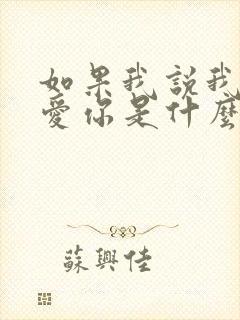 如果我說我
愛你是什麼
蘇興佳